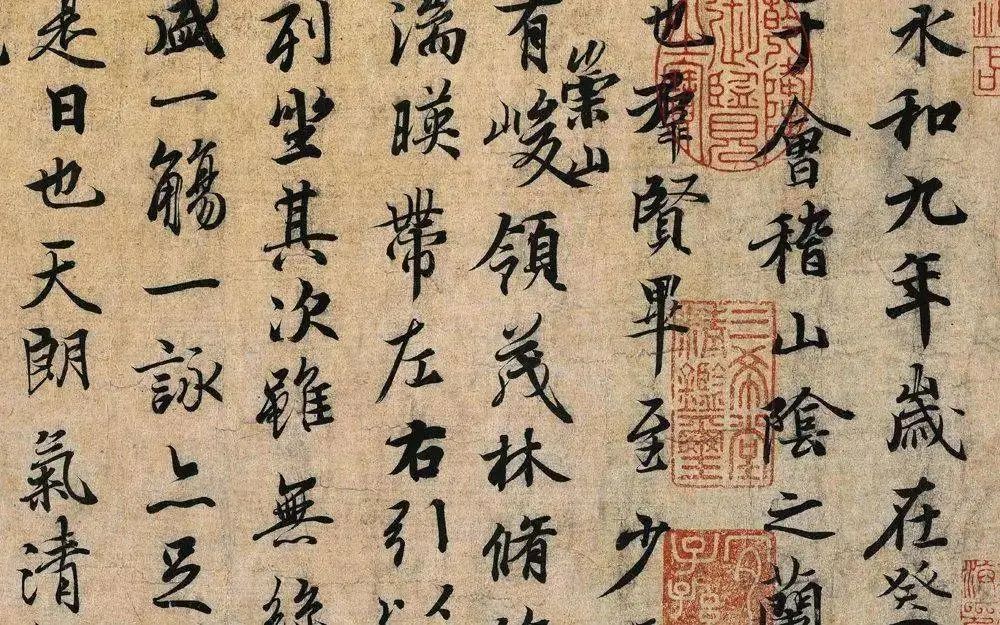 永和九年歲在癸
于會稽山陰之蘭
也羣賢畢至少
有崇山峻領茂林脩
湍暎帶左右引以
列坐其次雖無絲
盛一觴一詠亦足
是日也天朗氣清
三希堂
精鑑璽
宜
子孫